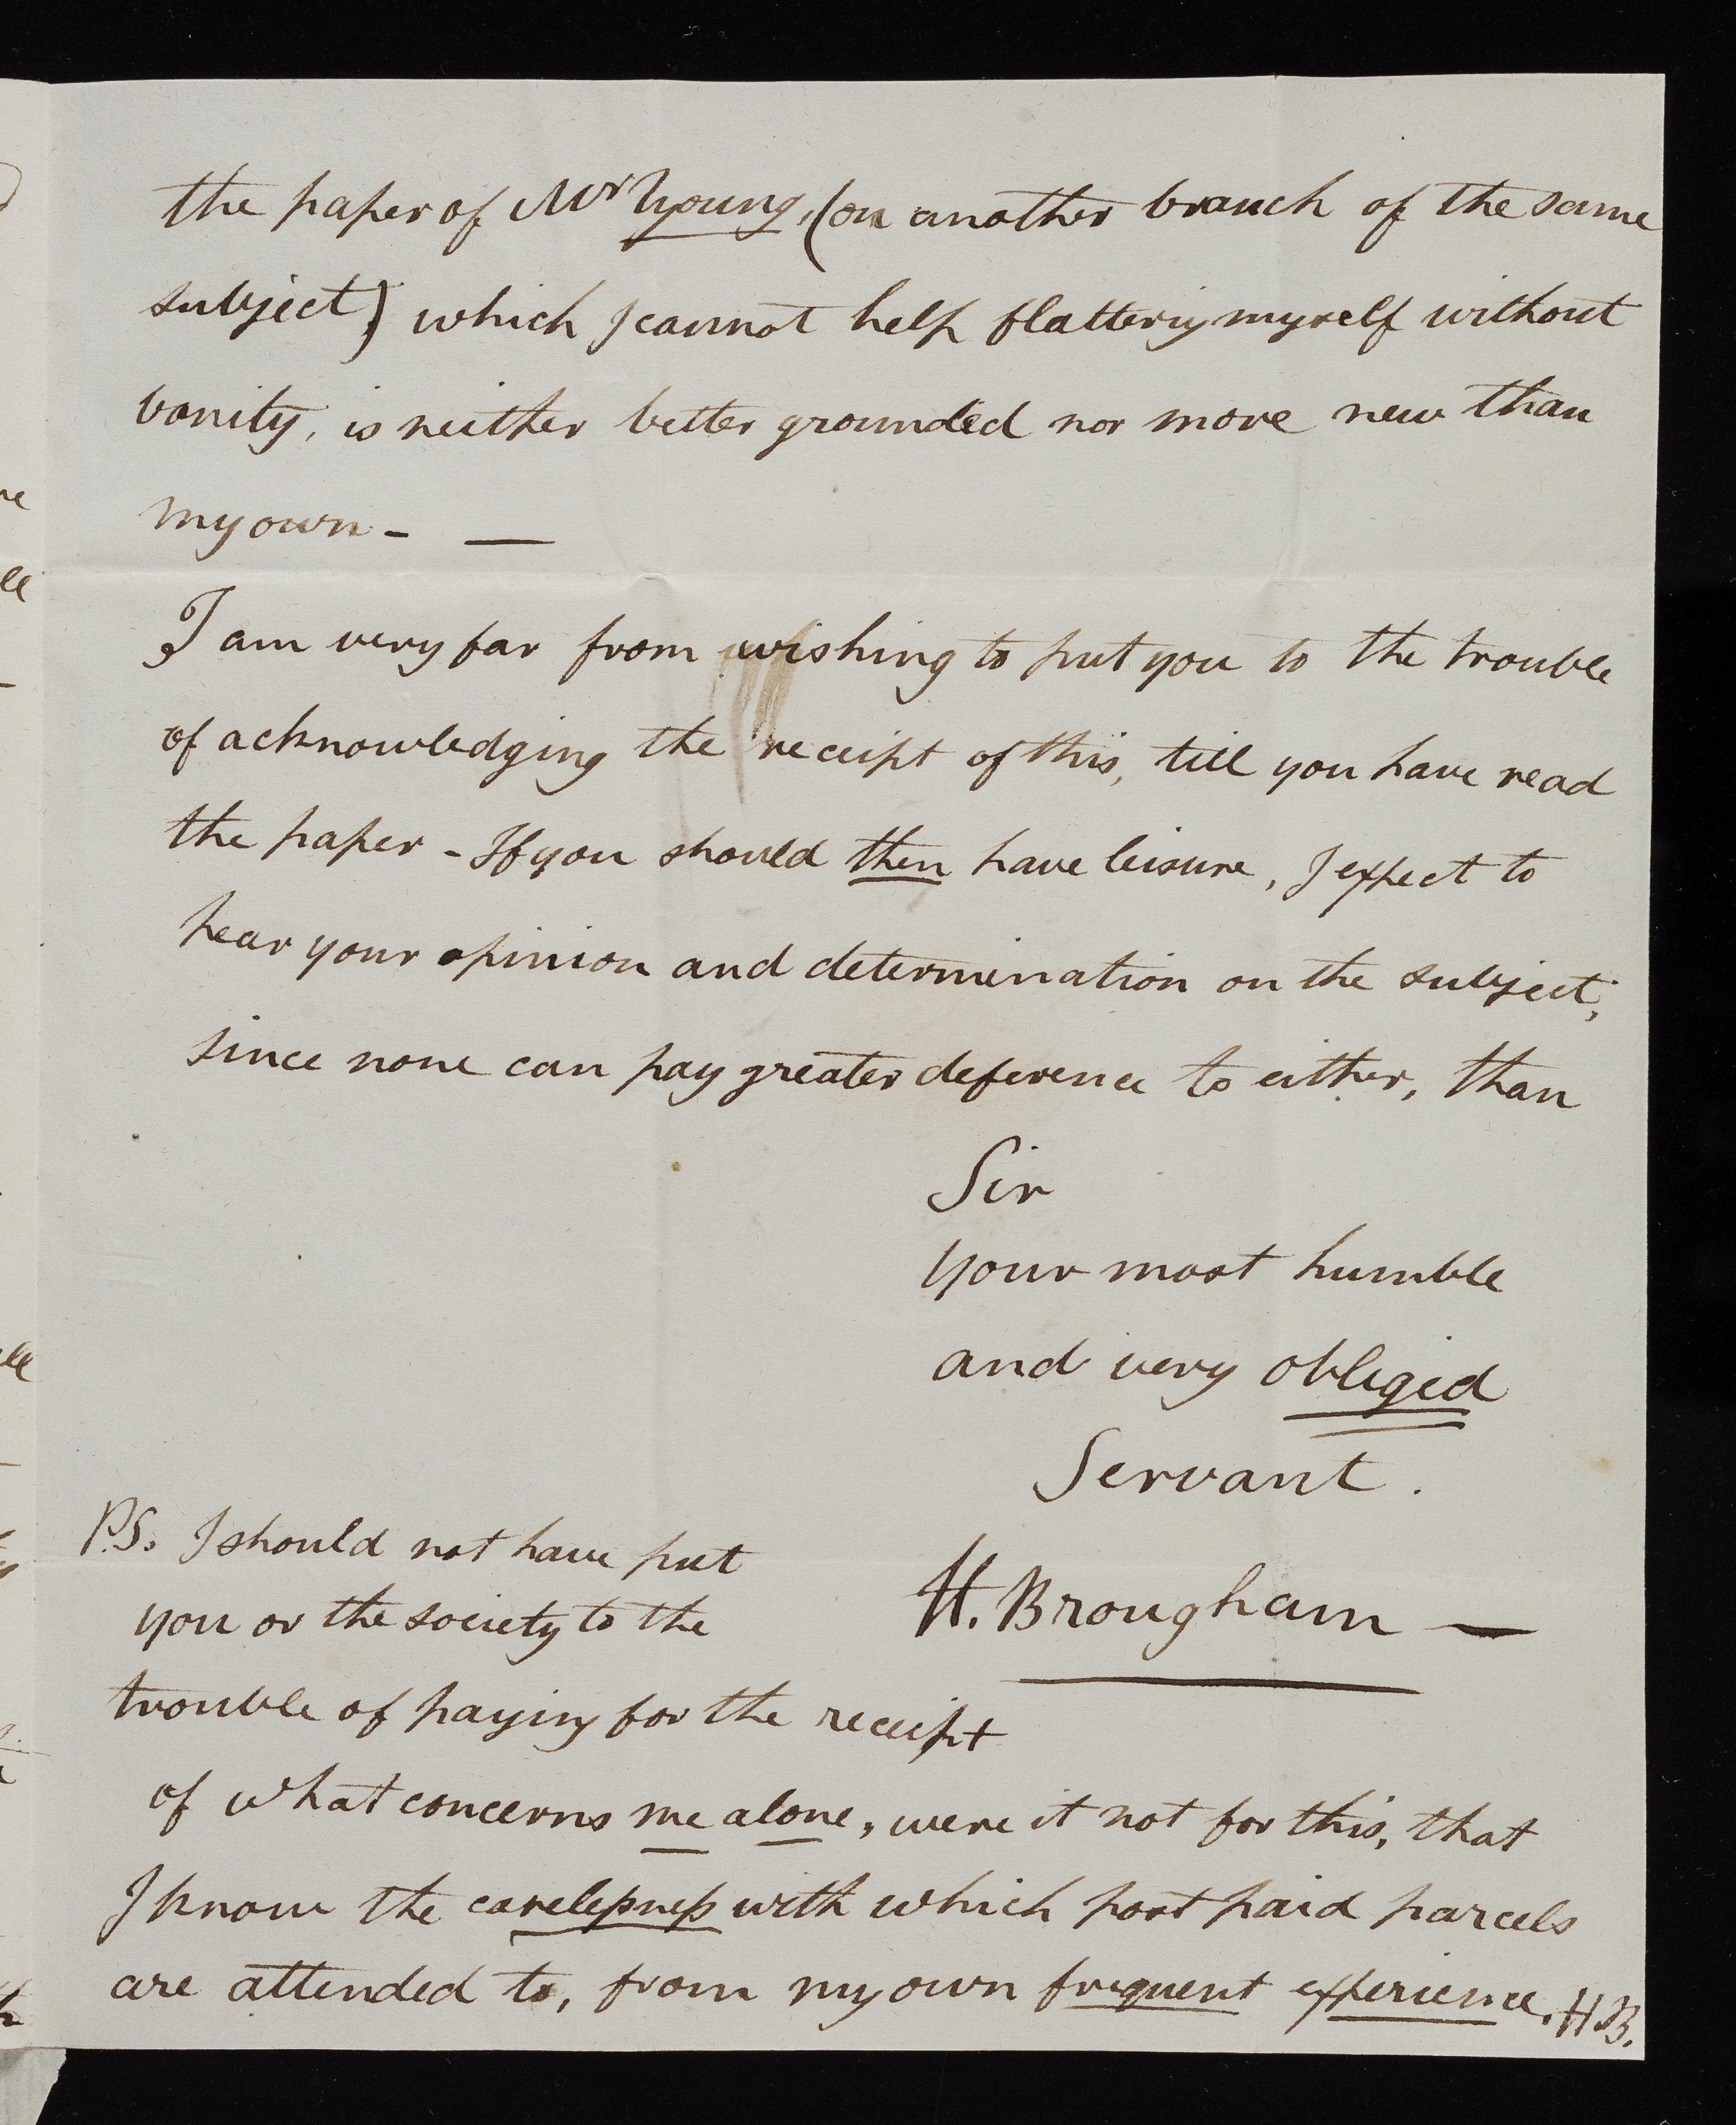 the paper of Mr Young, (on another branch of the same
subject) which I cannot help flattering myself without
vanity, is neither better grounded nor more new than
my own - —
I am very far from wishing to put you to the trouble
of acknowledging the receipt of this, till you have read
the paper - If you should then have leisure, I expect to
hear your opinion and determination on the subject;
since none can pay greater deference to either, than
Sir
your most humble
and very obliged
Servant.
H. Brougham —
P.S. I should not have put
you or the society to the
trouble of paying for the receipt
of what concerns me alone, were it not for this, that
I know the carelessness with which post paid parcels
are attended to, from my own frequent experience. HB.